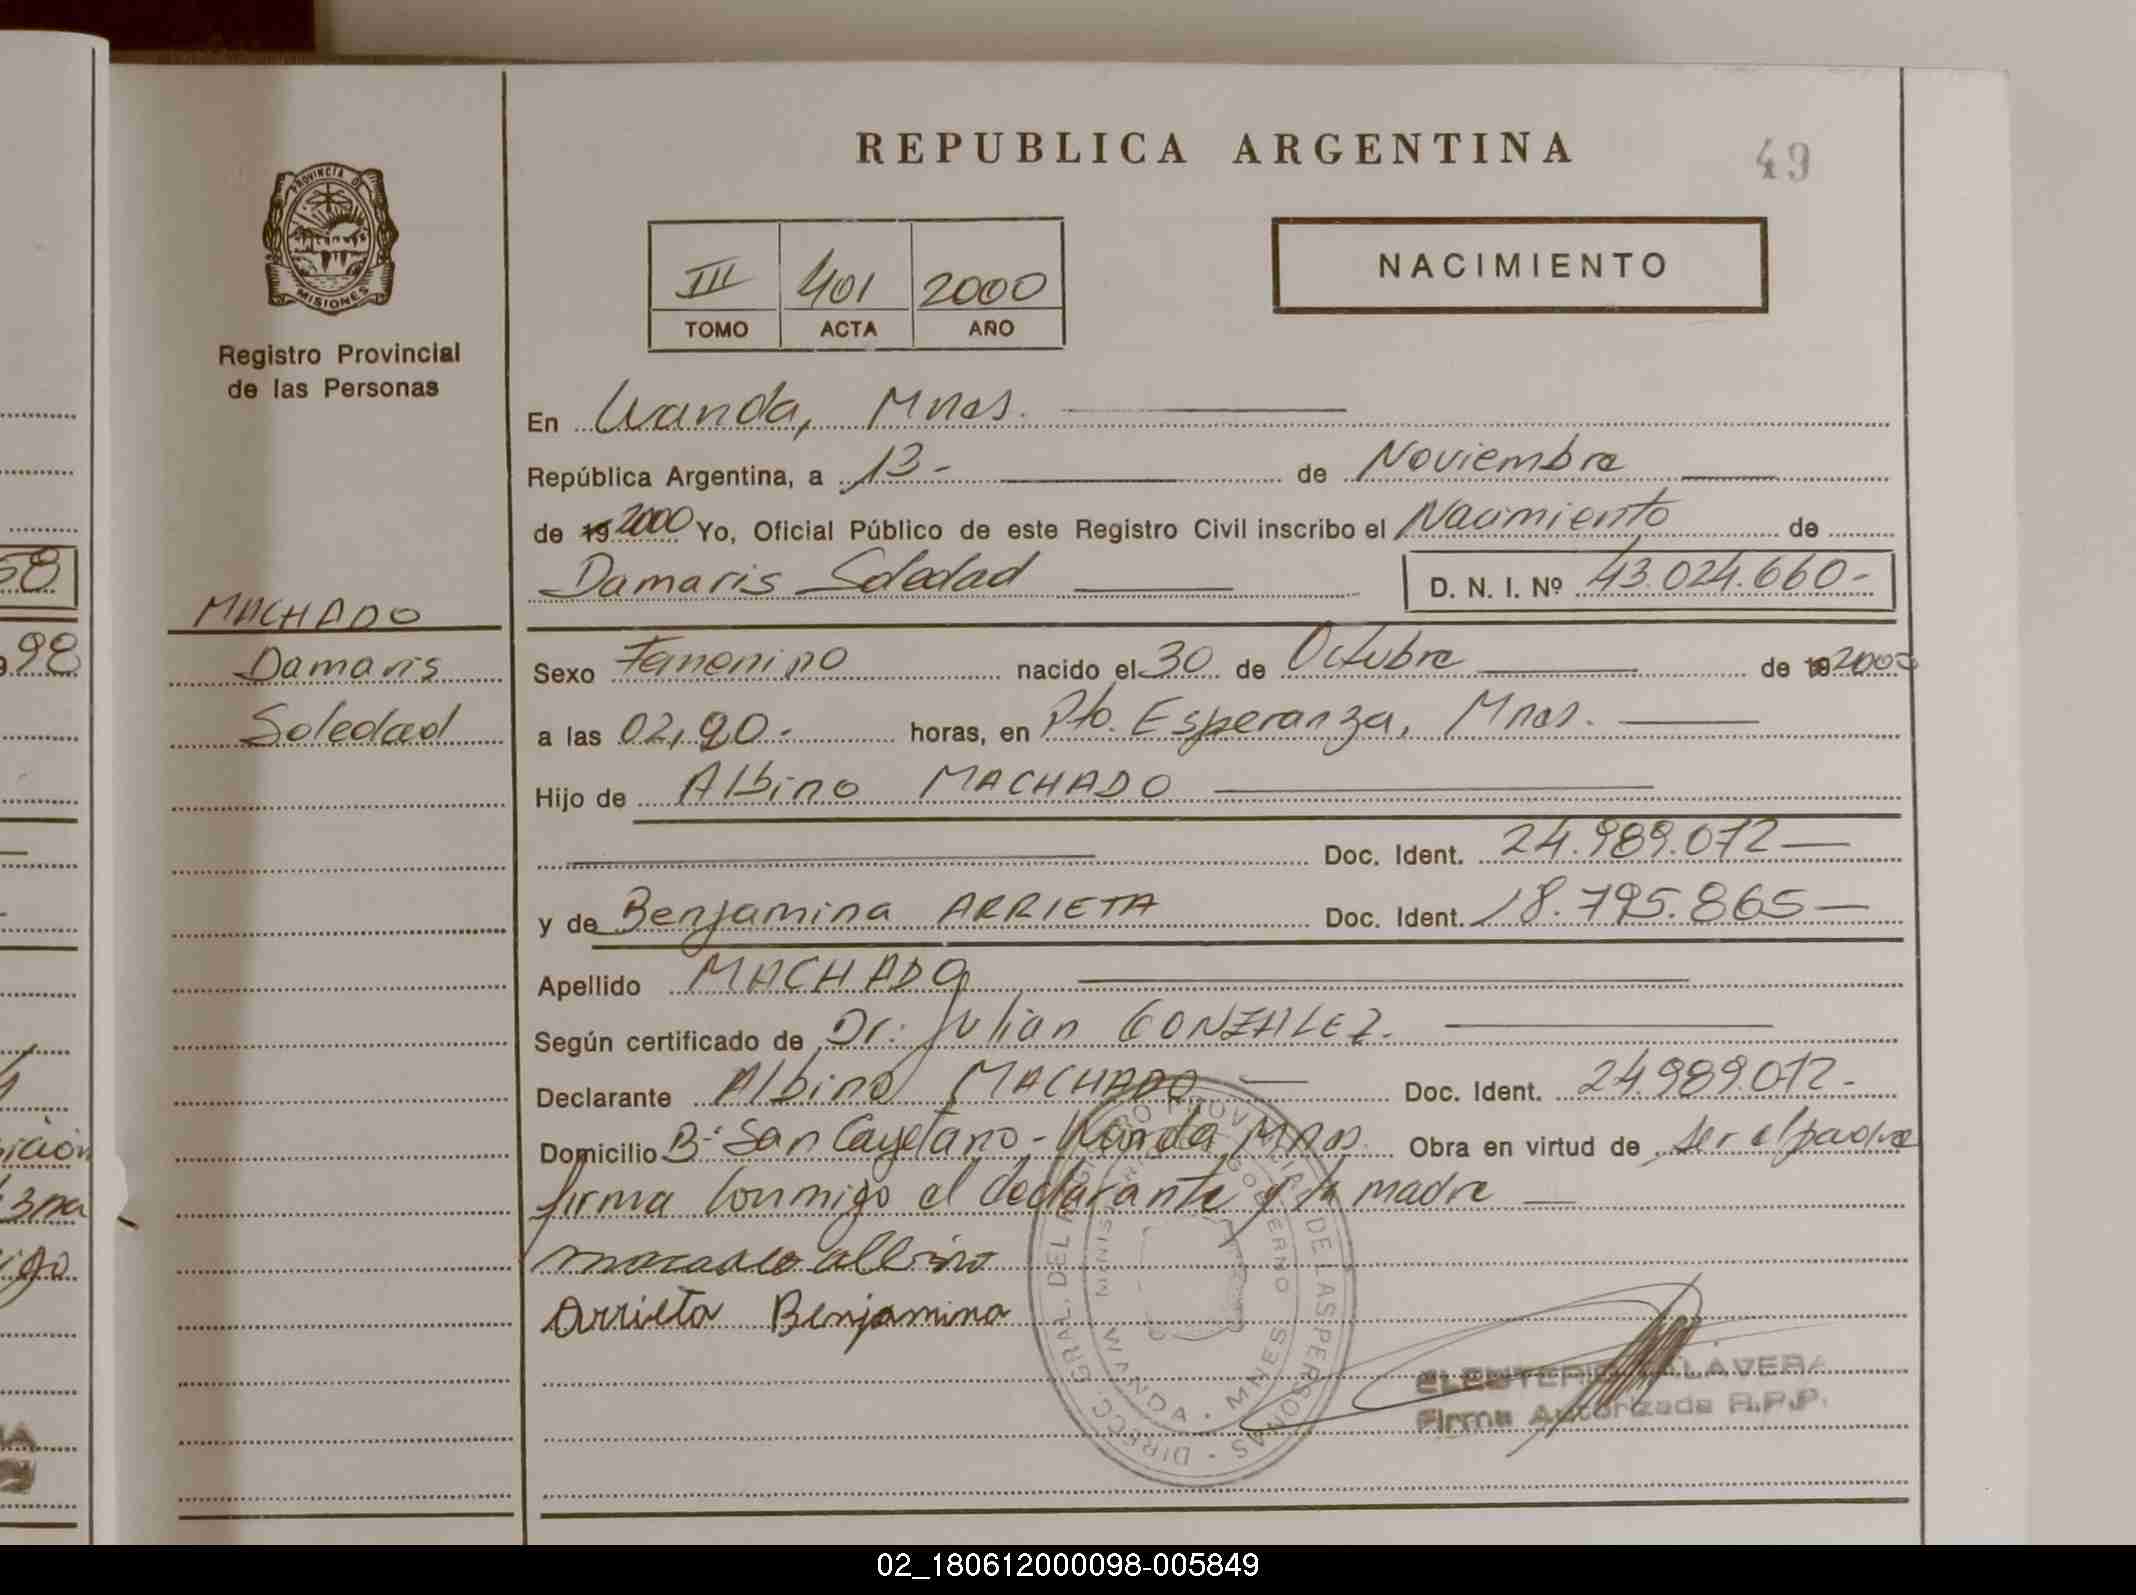 REPUBLICA ARGENTINA
49
PROVINCIA DE
MISIONES
Registro Provincial
de las Personas
III 401 2000
TOMO ACTA AÑO
NACIMIENTO
En Wanda, Mnes.
República Argentina, a 13- de Noviembre
de 19 2000 Yo, Oficial Público de este Registro Civil inscribo el Nacimiento de
Damaris Soledad D. N. I. Nº 43.024.660-
MACHADO
Damaris
Soledad
Sexo Femenino nacido el 30 de Octubre de 19 2000
a las 02,20- horas, en Pto. Esperanza, Mnes.
Hijo de Albino MACHADO
Doc. Ident. 24.989.072
y de Benjamina ARRIETA Doc. Ident. 18.795.865
Apellido MACHADO
Según certificado de Dr. Julian GONZALEZ.
Declarante Albino MACHADO Doc. Ident. 24.989.072-
Domicilio Bº San Cayetano - Wanda Mnes. Obra en virtud de ser el padre
firma conmigo el declarante y la madre
machado albino
Arrieta Benjamina
DIRECC. GRAL. DEL REGISTRO PROVINCIAL DE LAS PERSONAS
GOBIERNO
WANDA - MNES
ELEUTERIO TALAVERA
Firma Autorizada R.P.P.
58
98
02_180612000098-005849